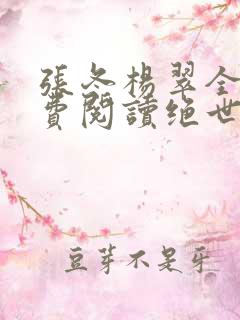 張冬楊翠全
費閱讀绝世
豆芽不是牙